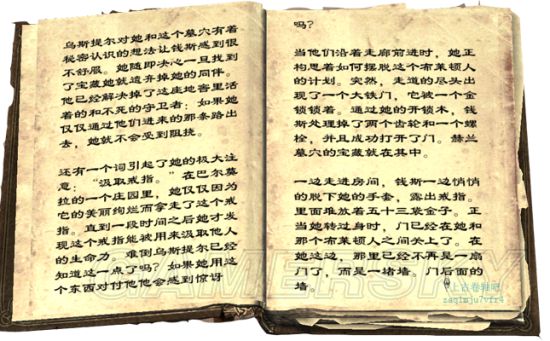 乌斯提尔对她和这个墓穴有着
秘密认识的想法让钱斯感到很
不舒服。她随即决心一旦找到
了宝藏她就遗弃掉她的同伴。
他已经解决掉了这座地窖里活
着的和不死的守卫者：如果她
仅仅通过他们进来的那条路出
去，她就不会受到阻挠。
还有一个词引起了她的极大注
意：“汲取戒指。”在巴尔莫
拉的一个庄园里，她仅仅因为
它的美丽绚烂而拿走了这个戒
指。直到一段时间之后她才发
现这个戒指能被用来汲取他人
的生命力。难倒乌斯提尔已经
知道这一点了吗？如果她用这
个东西对付他他会感到惊讶
吗？
当他们沿着走廊前进时，她正
构思着如何摆脱这个布莱顿人
的计划。突然，走道的尽头出
现了一个大铁门，它被一个金
锁锁着。通过她的开锁术，钱
斯处理掉了两个齿轮和一个螺
栓，并且成功打开了门。赫兰
墓穴的宝藏就在其中。
一边走进房间，钱斯一边悄悄
的脱下她的手套，露出戒指。
里面堆放着五十三袋金子。正
当她转过身时，门已经在她和
那个布莱顿人之间关上了。在
她这边，那里已经不再是一扇
门了，而是一堵墙。门后面的
墙。
GAMERSKY
上古卷轴吧
zaqimju7vfr4